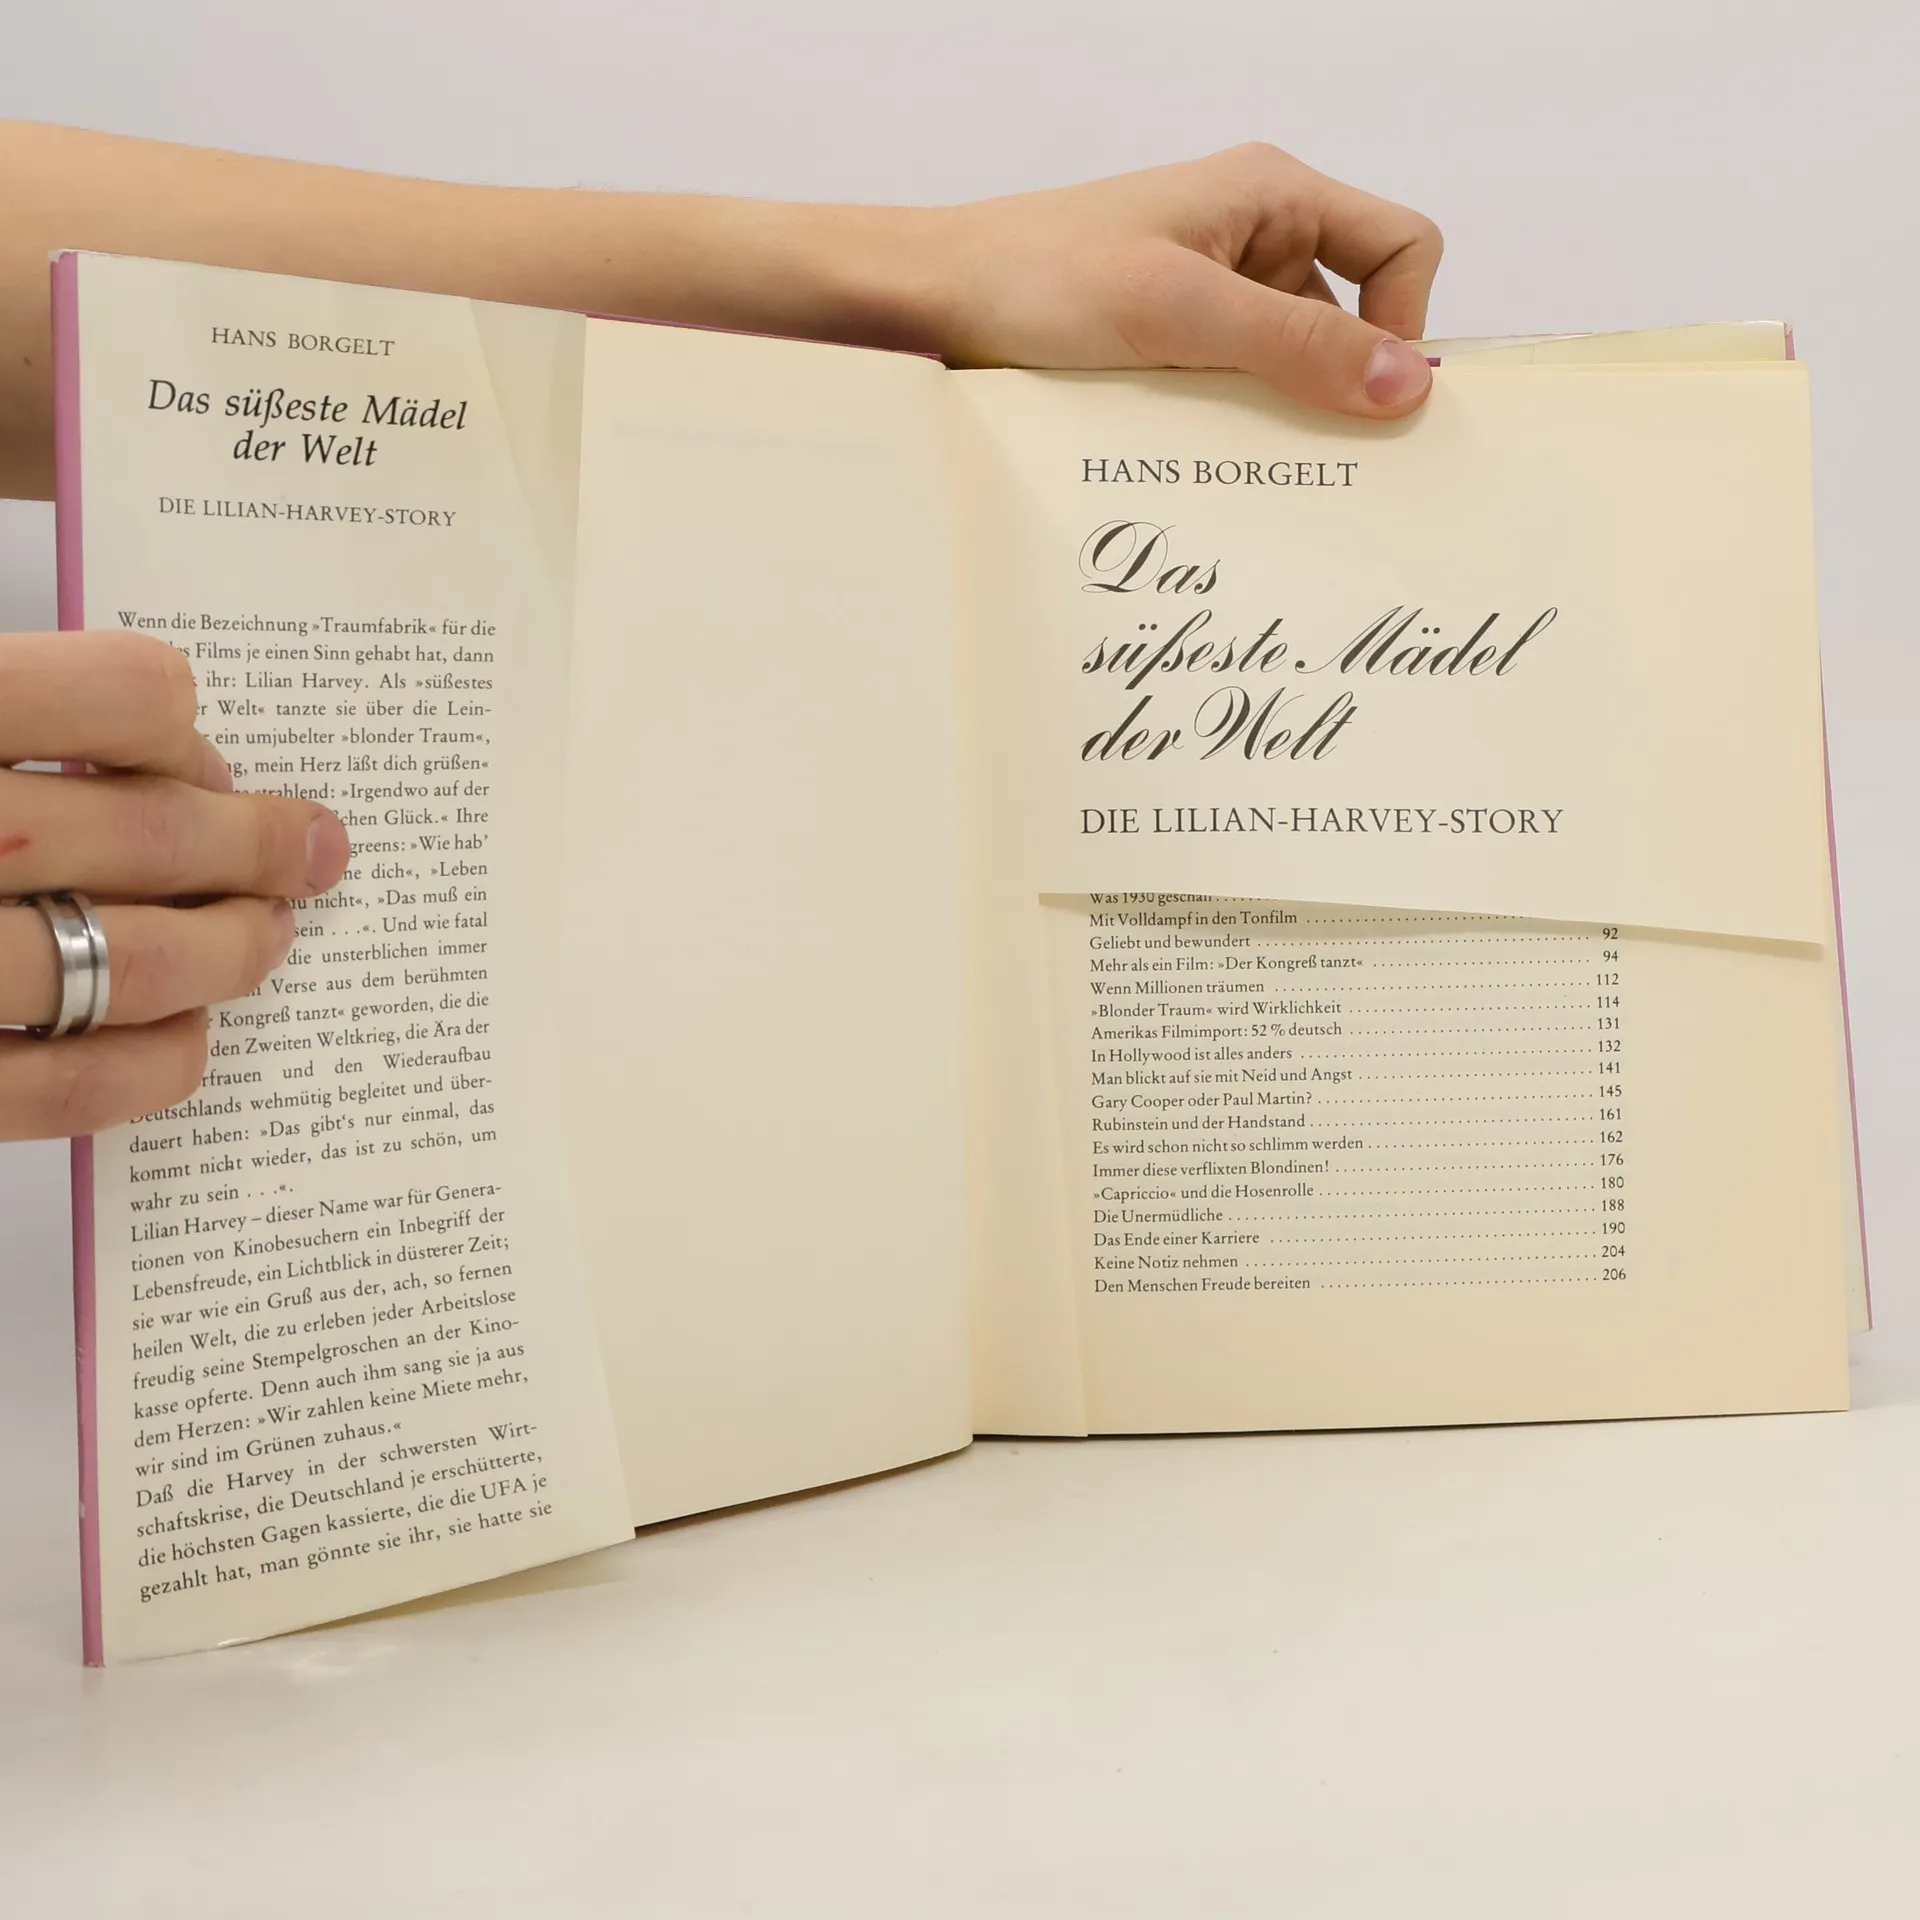 HANS BORGELT
Das süßeste Mädel
der Welt
DIE LILIAN-HARVEY-STORY
Wenn die Bezeichnung »Traumfabrik« für die
Films je einen Sinn gehabt hat, dann
ihr: Lilian Harvey. Als »süßestes
Welt« tanzte sie über die Lein-
ein umjubelter »blonder Traum«,
mein Herz läßt dich grüßen«
strahlend: »Irgendwo auf der
Glück.« Ihre
»Wie hab’
dich«, »Leben
nicht«, »Das muß ein
sein . . .«. Und wie fatal
die unsterblichen immer
Verse aus dem berühmten
Kongreß tanzt« geworden, die die
den Zweiten Weltkrieg, die Ära der
und den Wiederaufbau
Deutschlands wehmütig begleitet und über-
dauert haben: »Das gibt's nur einmal, das
kommt nicht wieder, das ist zu schön, um
wahr zu sein . . .«.
Lilian Harvey – dieser Name war für Genera-
tionen von Kinobesuchern ein Inbegriff der
Lebensfreude, ein Lichtblick in düsterer Zeit;
sie war wie ein Gruß aus der, ach, so fernen
heilen Welt, die zu erleben jeder Arbeitslose
freudig seine Stempelgroschen an der Kino-
kasse opferte. Denn auch ihm sang sie ja aus
dem Herzen: »Wir zahlen keine Miete mehr,
wir sind im Grünen zuhaus.«
Daß die Harvey in der schwersten Wirt-
schaftskrise, die Deutschland je erschütterte,
die höchsten Gagen kassierte, die die UFA je
gezahlt hat, man gönnte sie ihr, sie hatte sie
HANS BORGELT
Das
süßeste Mädel
der Welt
DIE LILIAN-HARVEY-STORY
Was 1930 geschah . . . .
Mit Volldampf in den Tonfilm . . . .
Geliebt und bewundert . . . . 92
Mehr als ein Film: »Der Kongreß tanzt« . . . . 94
Wenn Millionen träumen . . . . 112
»Blonder Traum« wird Wirklichkeit . . . . 114
Amerikas Filmimport: 52 % deutsch . . . . 131
In Hollywood ist alles anders . . . . 132
Man blickt auf sie mit Neid und Angst . . . . 141
Gary Cooper oder Paul Martin? . . . . 145
Rubinstein und der Handstand . . . . 161
Es wird schon nicht so schlimm werden . . . . 162
Immer diese verflixten Blondinen! . . . . 176
»Capriccio« und die Hosenrolle . . . . 180
Die Unermüdliche . . . . 188
Das Ende einer Karriere . . . . 190
Keine Notiz nehmen . . . . 204
Den Menschen Freude bereiten . . . . 206